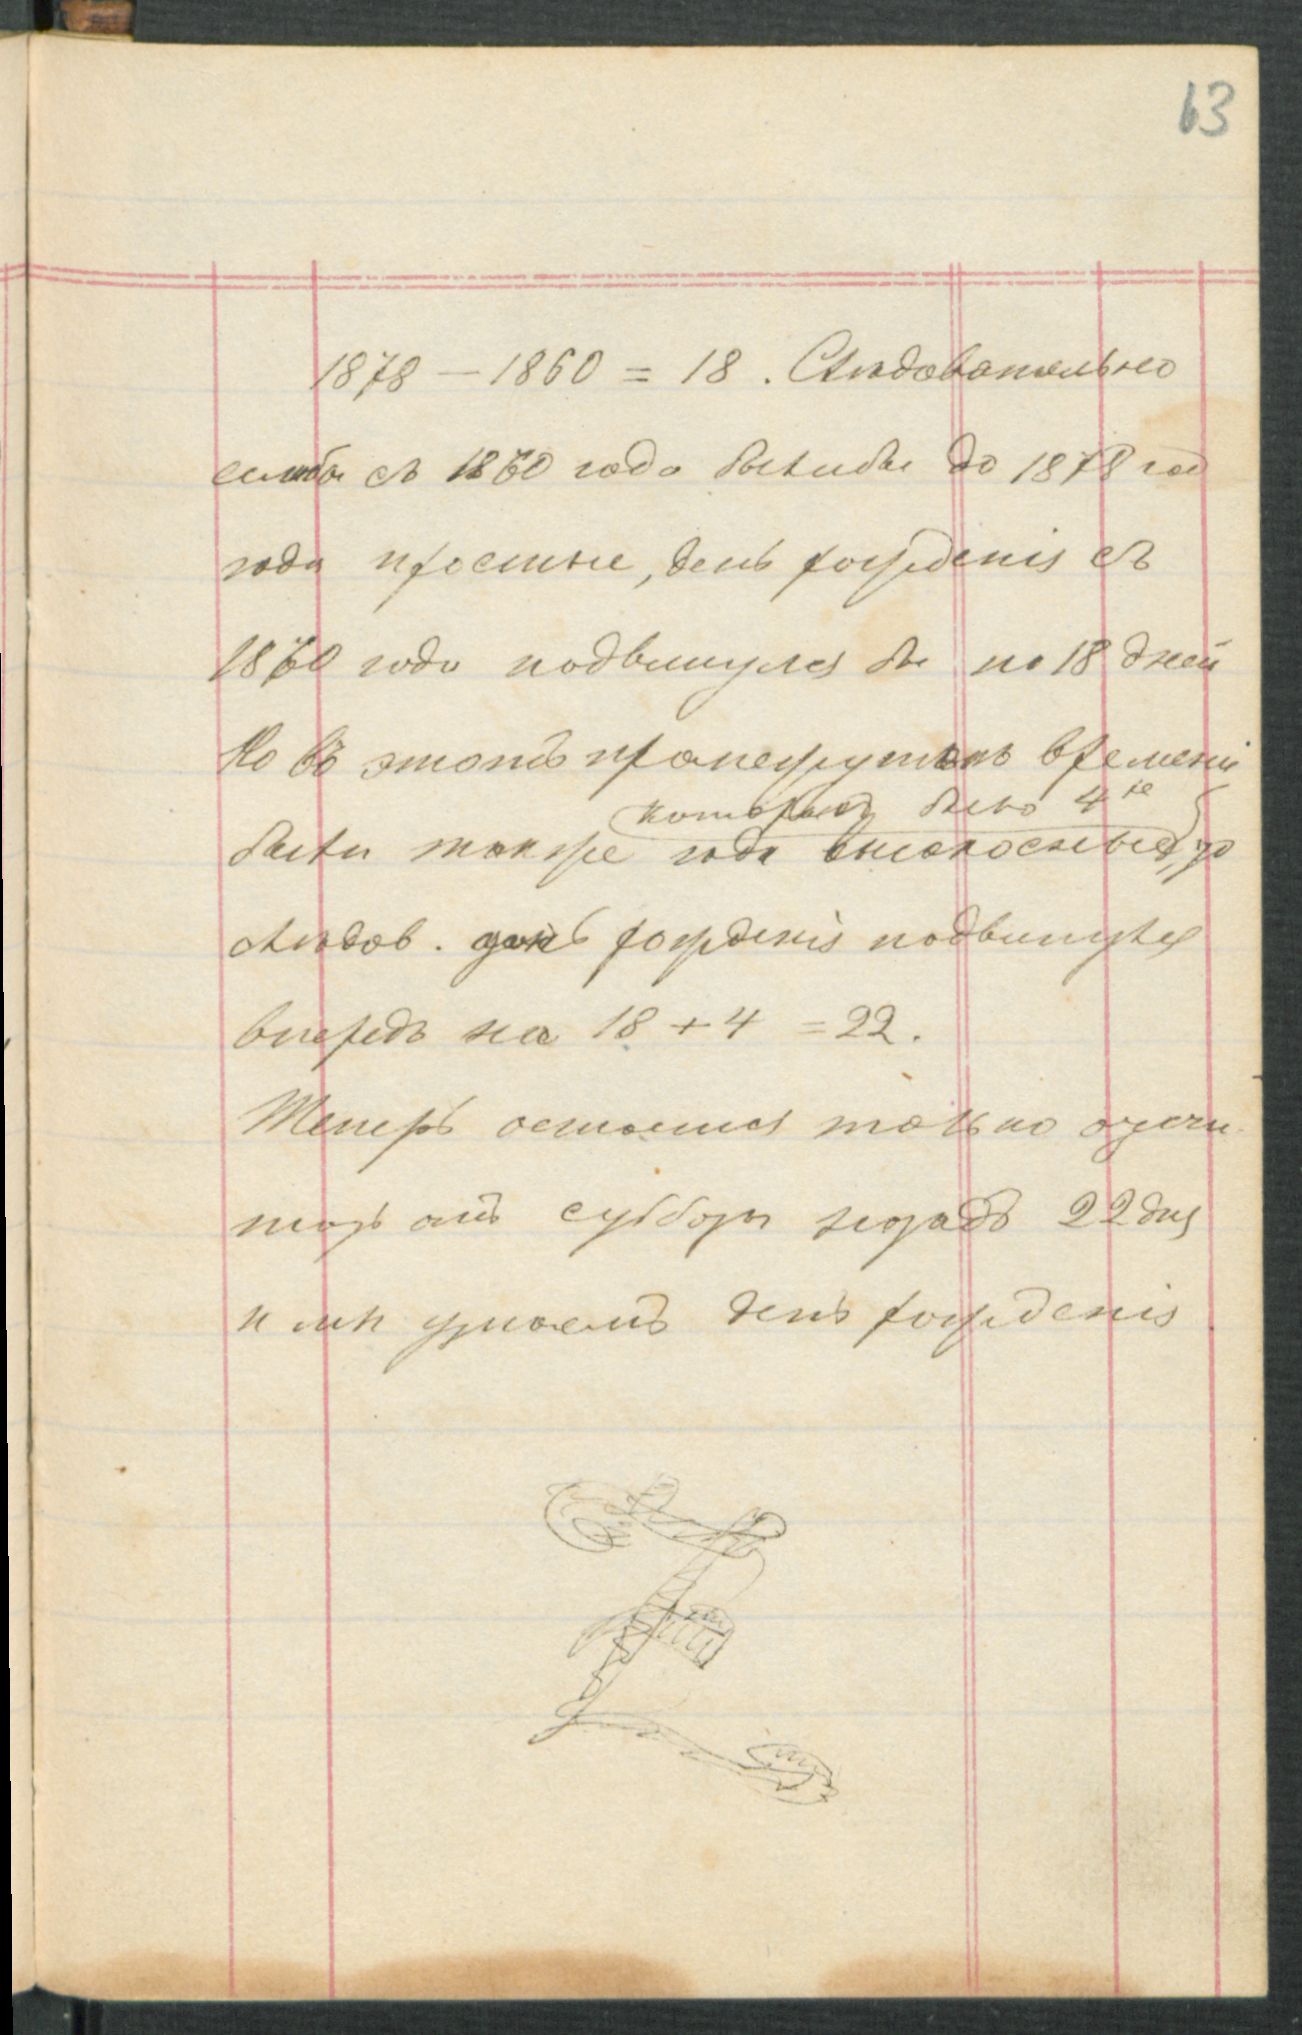 63
1878 – 1860 = 18. Слѣдовательно
еслибы съ 1860 года былибы до 1878 год
года простые, день рожденія съ
1860 года подвинулся бы на 18 дней
Но въ этотъ промежутокъ времени
которыхъ было 4ре
были также года високосные, то
слѣдов. день рожденія подвинулся
впередъ на 18 + 4 = 22.
Теперь остается только отсчи-
тать отъ субботы назадъ 22 дня
и мы узнаемъ день рожденія